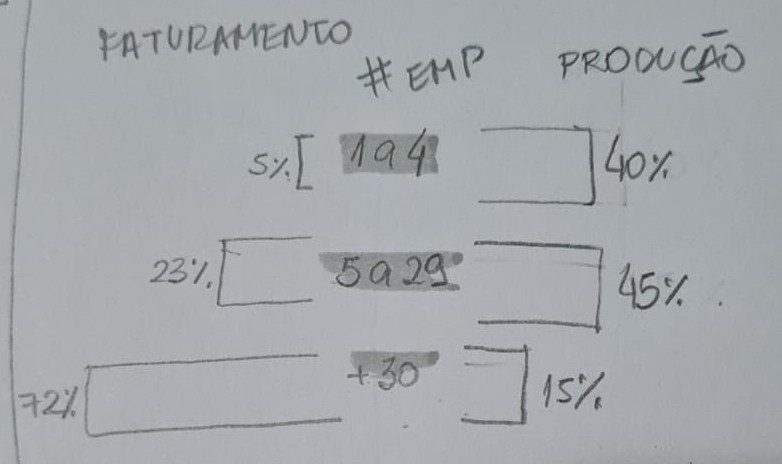 FATURAMENTO # EMP PRODUÇÃO
5% 1 a 4 40%
23% 5 a 29 45%
72% +30 15%